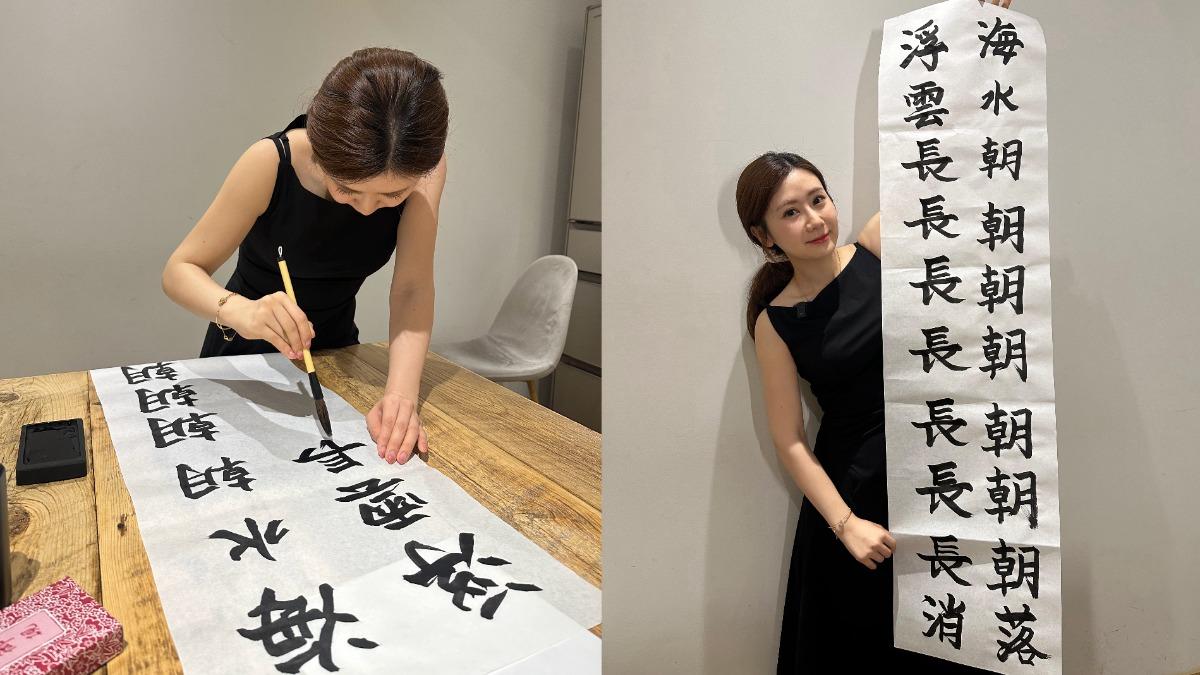 海水朝朝朝朝
浮雲
海水朝朝朝朝朝朝朝落
浮雲長長長長長長長消